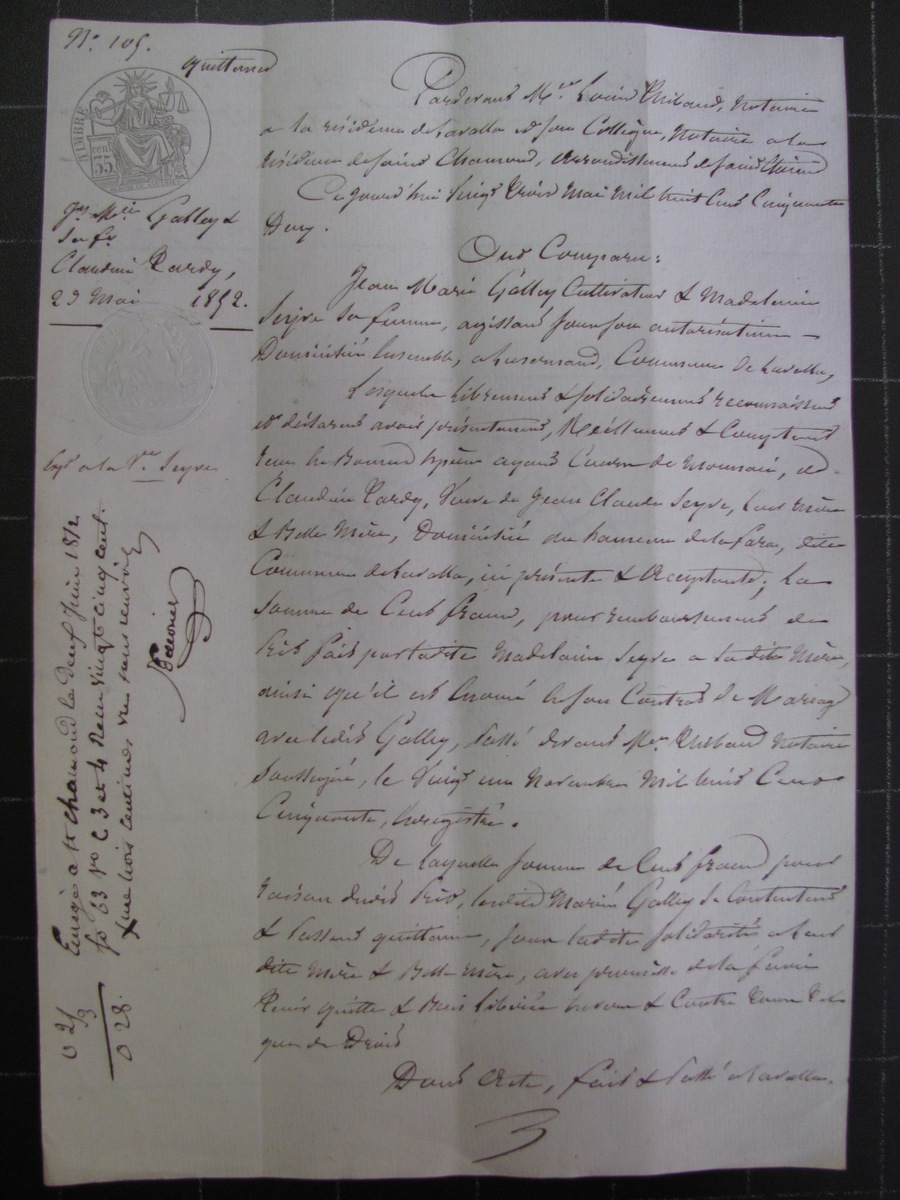 N.° 105.
quittance
TIMBRE
cen
35
Pardevant M.tre Louis Thibaud, Notaire
a la résidence de Lavalla et son Collègue, Notaire a la
résidence de Saint Chamond, arrondissement de Saint Etienne
Ce jourd'hui Vingt Trois Mai mil huit Cent Cinquante
Deux.
Jn Mrie Galley &
sa fe
Claudine Pardy,
23 Mai 1852.
Ont Comparu:
Jean Marie Galley Cultivateur & Madelaine
Seyve sa femme, agissant sous son autorisation
Domiciliés Ensemble, a Luzernaud, Commune de Lavalla,
Lesquels librement & solidairement reconnaissent
et déclarent avoir présentement, Réellement & Comptant
reçu en Bonnes Espèces ayant Cours de monnaie, de
Claudine Pardy, Veuve de Jean Claude Seyve, leur mère
& Belle Mère, Domiciliée au hameau de la Fara, dite
Commune de Lavalla, ici présente & acceptante; la
somme de Cent francs, pour remboursement de
prêt fait par ladite Madelaine Seyve a sa dite Mère,
ainsi qu'il est Enoncé en son Contrat de Mariage
avec ledit Galley, Passé devant M.re Thibaud Notaire
Soussigné, le Vingt un Novembre mil huit Cent
Cinquante, Enregistré.
De laquelle somme de Cent francs pour
raison dudit Prêt, lesdits Mariés Galley se Contentent
& Passent quittance, sous ladite solidarité a leur
dite Mère & Belle mère, avec promesse de la faire
Tenir quitte & Bien libérée envers & Contre Tous
que de Droit
Dont Acte, fait & Passé a Lavalla.
Expn a la Vve Seyve
Enrégé a St chamond le Neuf Juin 1852
fo 63 Vo C 3 et 4 Reçu vingt cinq cent.
x trois centimes
0 2/3
0 28.